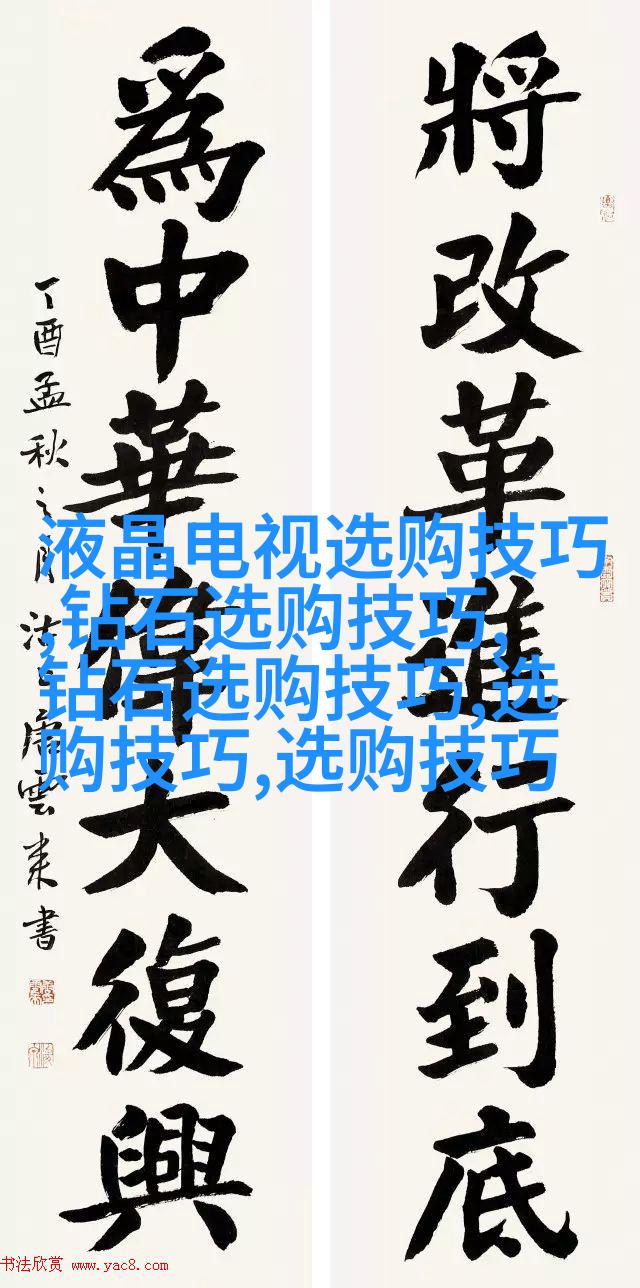 將改革進行到底
爲中華偉大復興
丁酉孟秋之月沽上唐雲来書
液晶电视选购技巧
,钻石选购技巧,
钻石选购技巧,选
购技巧,选购技巧
书法欣赏 www.yac8.com